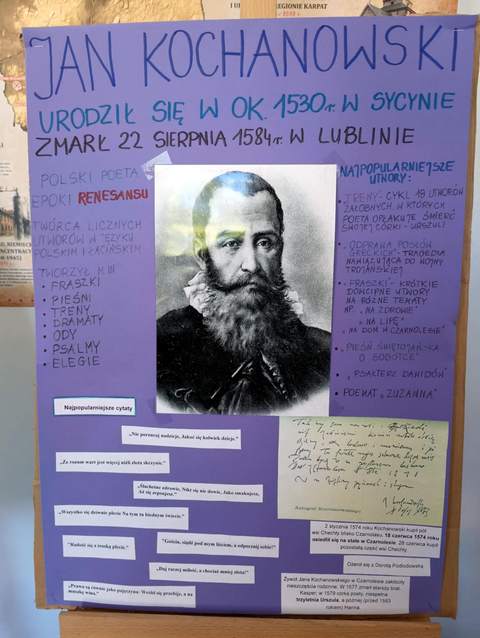 I U REGIONIE KARPAT
JAN KOCHANOWSKI
URODZIŁ SIĘ W OK. 1530r. W SYCYNIE
ZMARŁ 22 SIERPNIA 1584r. W LUBLINIE
POLSKI POETA
EPOKI RENESANSU
TWÓRCA LICZNYCH
UTWORÓW W JĘZYKU
POLSKIM I ŁACIŃSKIM
TWORZYŁ M.IN
• FRASZKI
• PIEŚNI
• TRENY
• DRAMATY
• ODY
• PSALMY
• ELEGIE
NAJPOPULARNIEJSZE
UTWORY:
• „TRENY"- CYKL 19 UTWORÓW
ŻAŁOBNYCH, W KTÓRYCH
POETA OPŁAKUJE ŚMIERĆ
SWOJEJ CÓRKI - URSZULI
• „ODPRAWA POSŁÓW
GRECKICH"- TRAGEDIA
NAWIĄZUJĄCA DO WOJNY
TROJAŃSKIEJ
• „FRASZKI"- KRÓTKIE
DOWCIPNE UTWORY
NA RÓŻNE TEMATY
NP. „NA ZDROWIE"
„NA LIPĘ"
„NA DOM W CZARNOLESIE"
• „PIEŚŃ ŚWIĘTOJAŃSKA
O SOBÓTCE"
• „PSAŁTERZ DAWIDÓW"
• POEMAT „ZUZANNA"
Najpopularniejsze cytaty
„Nie porzucaj nadzieje, Jakoć się kolwiek dzieje."
„Za rozum wart jest więcej niźli złota skrzynie."
„Ślachetne zdrowie, Nikt się nie dowie, Jako smakujesz,
Aż się zepsujesz."
„Wszystko się dziwnie plecie Na tym tu biednym świecie."
"Radość się z troską plecie."
"Gościu, siądź pod mym liściem, a odpoczni sobie!"
„Daj raczej miłość, a chociaż mniej złota!"
„Prawa są równie jako pajęczyna: Wróbl się przebije, a na
muszkę wina."
2 stycznia 1574 roku Kochanowski kupił pół
wsi Chechły blisko Czarnolasu. 18 czerwca 1574 roku
osiedlił się na stałe w Czarnolesie. 28 czerwca kupił
pozostałą część wsi Chechły.
Ożenił się z Dorotą Podlodowską
Żywot Jana Kochanowskiego w Czarnolesie zakłóciły
nieszczęścia rodzinne. W 1577 zmarł starszy brat,
Kasper, w 1579 córka poety, niespełna
trzyletnia Urszula, a później (przed 1583
rokiem) Hanna.